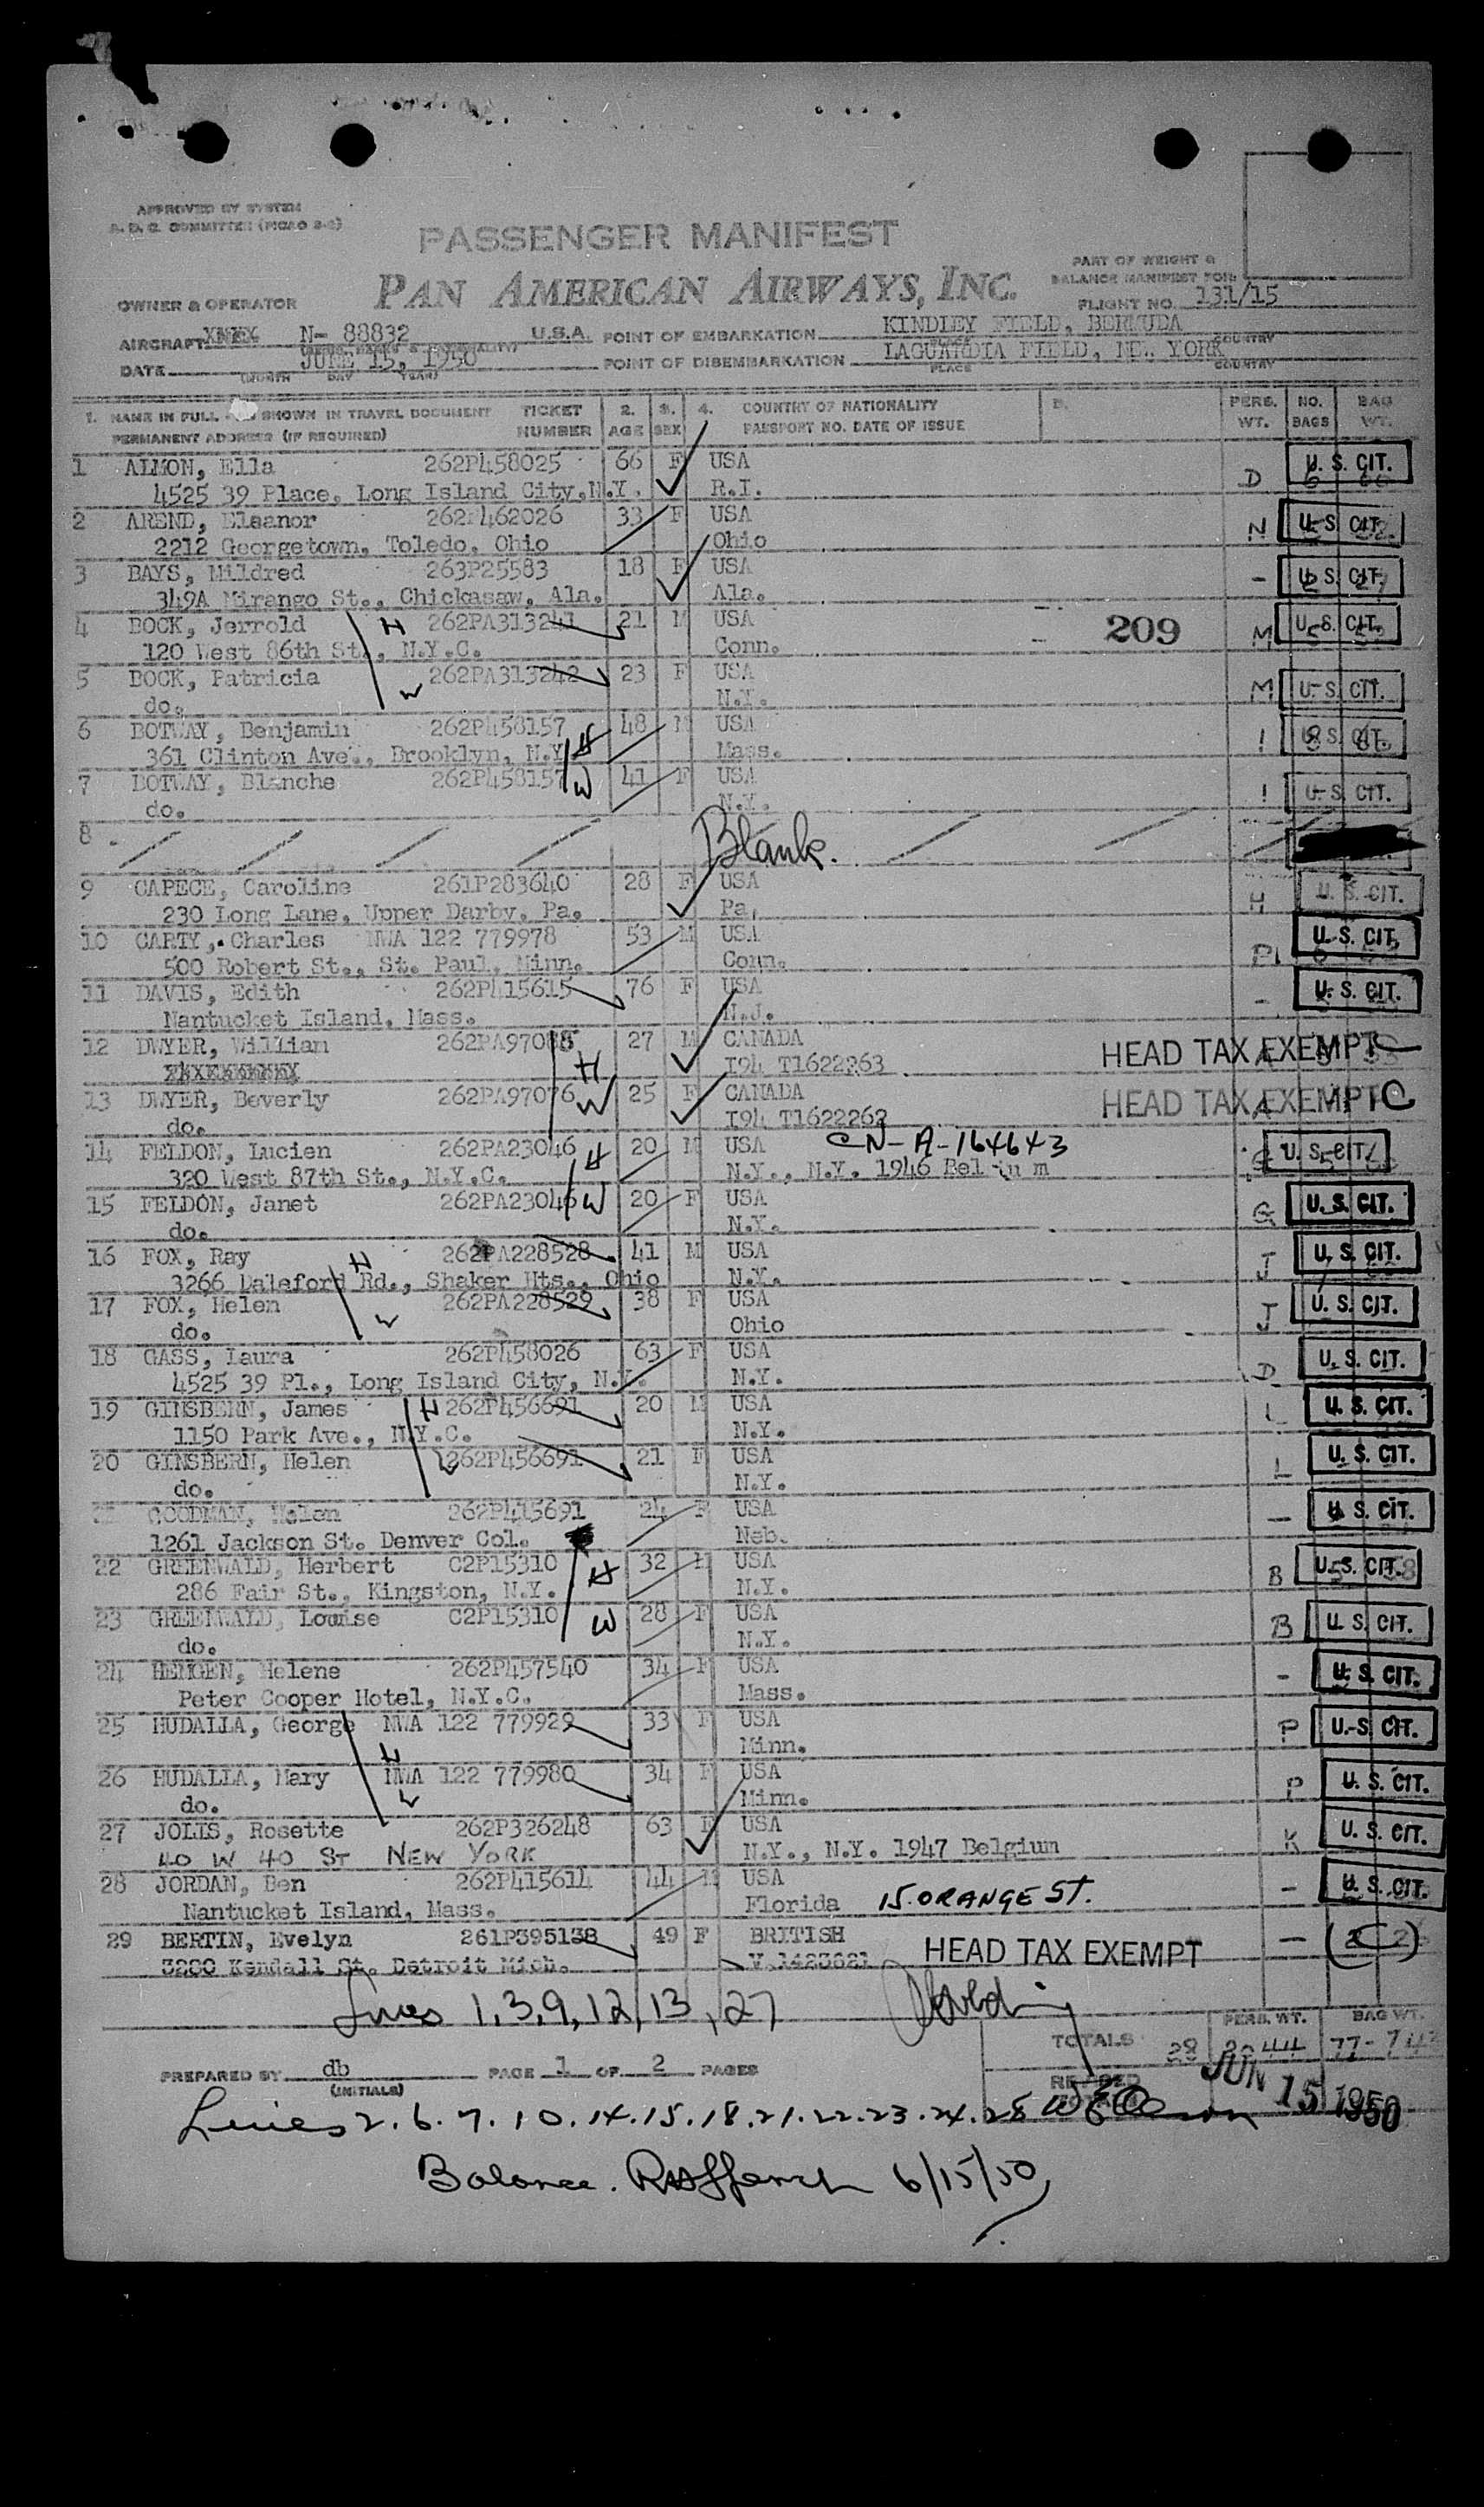 APPROVED BY SYSTEM
A. D. C. COMMITTEE (PICAO 2-2)
PASSENGER MANIFEST
PAN AMERICAN AIRWAYS, INC.
PART OF WEIGHT &
BALANCE MANIFEST FOR:
FLIGHT NO. 131/15
OWNER & OPERATOR
AIRCRAFT N- 88832 U.S.A. POINT OF EMBARKATION KINDLEY FIELD, BERMUDA
DATE JUNE 15, 1950 POINT OF DISEMBARKATION LAGUARDIA FIELD, NEW YORK
(MONTH DAY YEAR) PLACE COUNTRY
1. NAME IN FULL SHOWN IN TRAVEL DOCUMENT TICKET 2. 3. 4. COUNTRY OF NATIONALITY 5. PERS. NO. BAG
PERMANENT ADDRESS (IF REQUIRED) NUMBER AGE SEX PASSPORT NO. DATE OF ISSUE WT. BAGS WT.
1 ALMON, Ella 262P458025 66 F USA U. S. CIT.
4525 39 Place, Long Island City, N.Y. R.I. D
2 AREND, Eleanor 262P462026 33 F USA U. S. CIT.
2212 Georgetown, Toledo, Ohio Ohio N
3 BAYS, Mildred 263P25583 18 F USA - U. S. CIT.
349A Mirango St., Chickasaw, Ala. Ala.
4 BOCK, Jerrold H 262PA313241 21 M USA 209 M U. S. CIT.
120 West 86th St., N.Y.C. Conn.
5 BOCK, Patricia W 262PA313242 23 F USA M U. S. CIT.
do. N.Y.
6 BOTWAY, Benjamin 262P458157 H 48 M USA U. S. CIT.
361 Clinton Ave., Brooklyn, N.Y. Mass. I
7 BOTWAY, Blanche 262P458157 W 41 F USA I U. S. CIT.
do. N.Y.
8 Blank.
9 CAPECE, Caroline 261P283640 28 F USA H U. S. CIT.
230 Long Lane, Upper Darby, Pa. Pa.
10 CARTY, Charles NWA 122 779978 53 M USA U. S. CIT.
500 Robert St., St. Paul, Minn. Conn. P
11 DAVIS, Edith 262P415615 76 F USA - U. S. CIT.
Nantucket Island, Mass. N.J.
12 DWYER, Willian 262PA97088 H 27 M CANADA HEAD TAX EXEMPT
I94 T1622263
13 DWYER, Beverly 262PA97076 W 25 F CANADA HEAD TAX EXEMPT C
do. I94 T1622262
14 FELDON, Lucien 262PA23046 H 20 M USA CN-A-164643 U. S. CIT.
320 West 87th St., N.Y.C. N.Y., N.Y. 1946 Belgium G
15 FELDON, Janet 262PA23046 W 20 F USA G U. S. CIT.
do. N.Y.
16 FOX, Ray H 262PA228528 41 M USA J U. S. CIT.
3266 Daleford Rd., Shaker Hts., Ohio N.Y.
17 FOX, Helen W 262PA228529 38 F USA J U. S. CIT.
do. Ohio
18 GASS, Laura 262P458026 63 F USA D U. S. CIT.
4525 39 Pl., Long Island City, N.Y. N.Y.
19 GINSBERN, James H 262P456691 20 M USA L U. S. CIT.
1150 Park Ave., N.Y.C. N.Y.
20 GINSBERN, Helen W 262P456691 21 F USA L U. S. CIT.
do. N.Y.
21 GOODMAN, Helen 262P415691 24 F USA - U. S. CIT.
1261 Jackson St. Denver Col. Neb.
22 GREENWALD, Herbert C2P15310 H 32 M USA B U. S. CIT.
286 Fair St., Kingston, N.Y. N.Y.
23 GREENWALD, Louise C2P15310 W 28 F USA B U. S. CIT.
do. N.Y.
24 HENGEN, Helene 262P457540 34 F USA - U. S. CIT.
Peter Cooper Hotel, N.Y.C. Mass.
25 HUDALLA, George NWA 122 779929 33 USA P U. S. CIT.
H Minn.
26 HUDALLA, Mary NWA 122 779980 34 F USA P U. S. CIT.
do. W Minn.
27 JOLIS, Rosette 262P326248 63 F USA K U. S. CIT.
40 W 40 ST NEW YORK N.Y., N.Y. 1947 Belgium
28 JORDAN, Ben 262P415614 44 M USA - U. S. CIT.
Nantucket Island, Mass. Florida 15 ORANGE ST.
29 BERTIN, Evelyn 261P395138 49 F BRITISH HEAD TAX EXEMPT - (C)
3280 Kendall St. Detroit Mich. V.1423621
Lines 1,3,9,12,13,27
TOTALS 28 PERS. WT. BAG WT.
PREPARED BY db PAGE 1 OF 2 PAGES
(INITIALS)
JUN 15 1950
Lines 2.6.7.10.14.15.18.21.22.23.24.28
Balance. 6/15/50